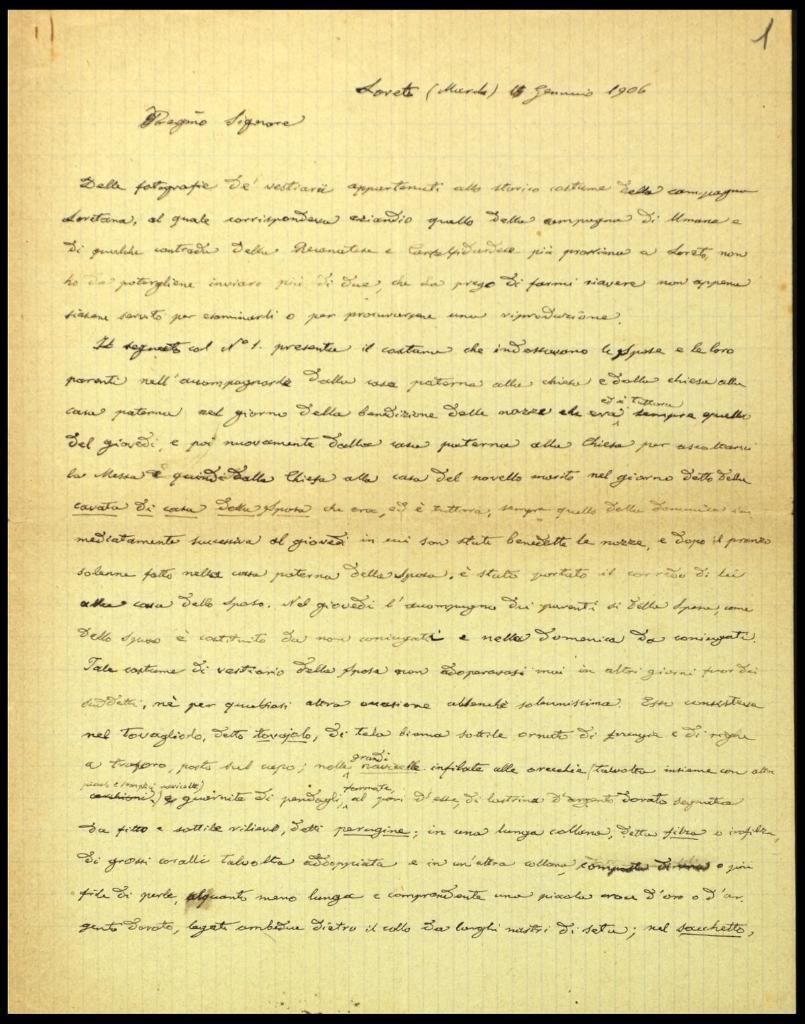 1
Loreto (Marche) Gennaio 1906
Pregmo Signore
Delle fotografie de' vestiari appartenuti allo storico costume della campagna
Loretana, al quale corrispondeva eziandio quello della campagna di Umana e
di qualche contrada della Recanatese e Castelfidardese più prossima a Loreto, non
ho da potergliene inviare più di due, che La prego di farmi riavere non appena
siasene servito per esaminarli o per procurarsene una riproduzione.
Il segnato col Nº 1. presenta il costume che indossavano le Spose e le loro
parenti nell'accompagnarle dalla casa paterna alla chiesa e dalla chiesa alla
ed è tuttora
casa paterna nel giorno della benedizione delle nozze che era sempre quello
del giovedì, e poi nuovamente dalla casa paterna alla Chiesa per ascoltarvi
la Messa e quindi dalla Chiesa alla casa del novello marito nel giorno detto della
cavata di casa della Sposa che era, ed è tuttora, sempre quello della domenica im
mediatamente successiva al giovedì in cui son state benedette le nozze, e dopo il pranzo
solenne fatto nella casa paterna della Sposa, è stato portato il corredo di lei
alla casa dello Sposo. Nel giovedì l'accompagno dei parenti sì della Sposa, come
dello Sposo è costituito da non coniugati e nella domenica da coniugati.
Tale costume di vestiario della Sposa non adoperavasi mai in altri giorni fuor dei
suddetti, nè per qualsiasi altra occasione abbenchè solennissima. Esso consisteva
nel tovagliolo, detto tovajolo, di tela bianca sottile ornato di frangia e di righe
grandi
a traforo, posto sul capo; nelle navicelle infilate alle orecchie (talvolta insieme con altre
formate,
guarnite di pendagli, al pari d'esse, di lastrina d'argento dorato segnata
da fitto e sottile rilievo, detti perugine; in una lunga collana, detta filza o infilza,
di grossi coralli talvolta addoppiata e in un'altra collana, composta di una o più
file di perle, alquanto meno lunga e comprendente una piccola croce d'oro o d'ar.
gento dorato, legate ambedue dietro il collo da lunghi nastri di seta; nel sacchetto,